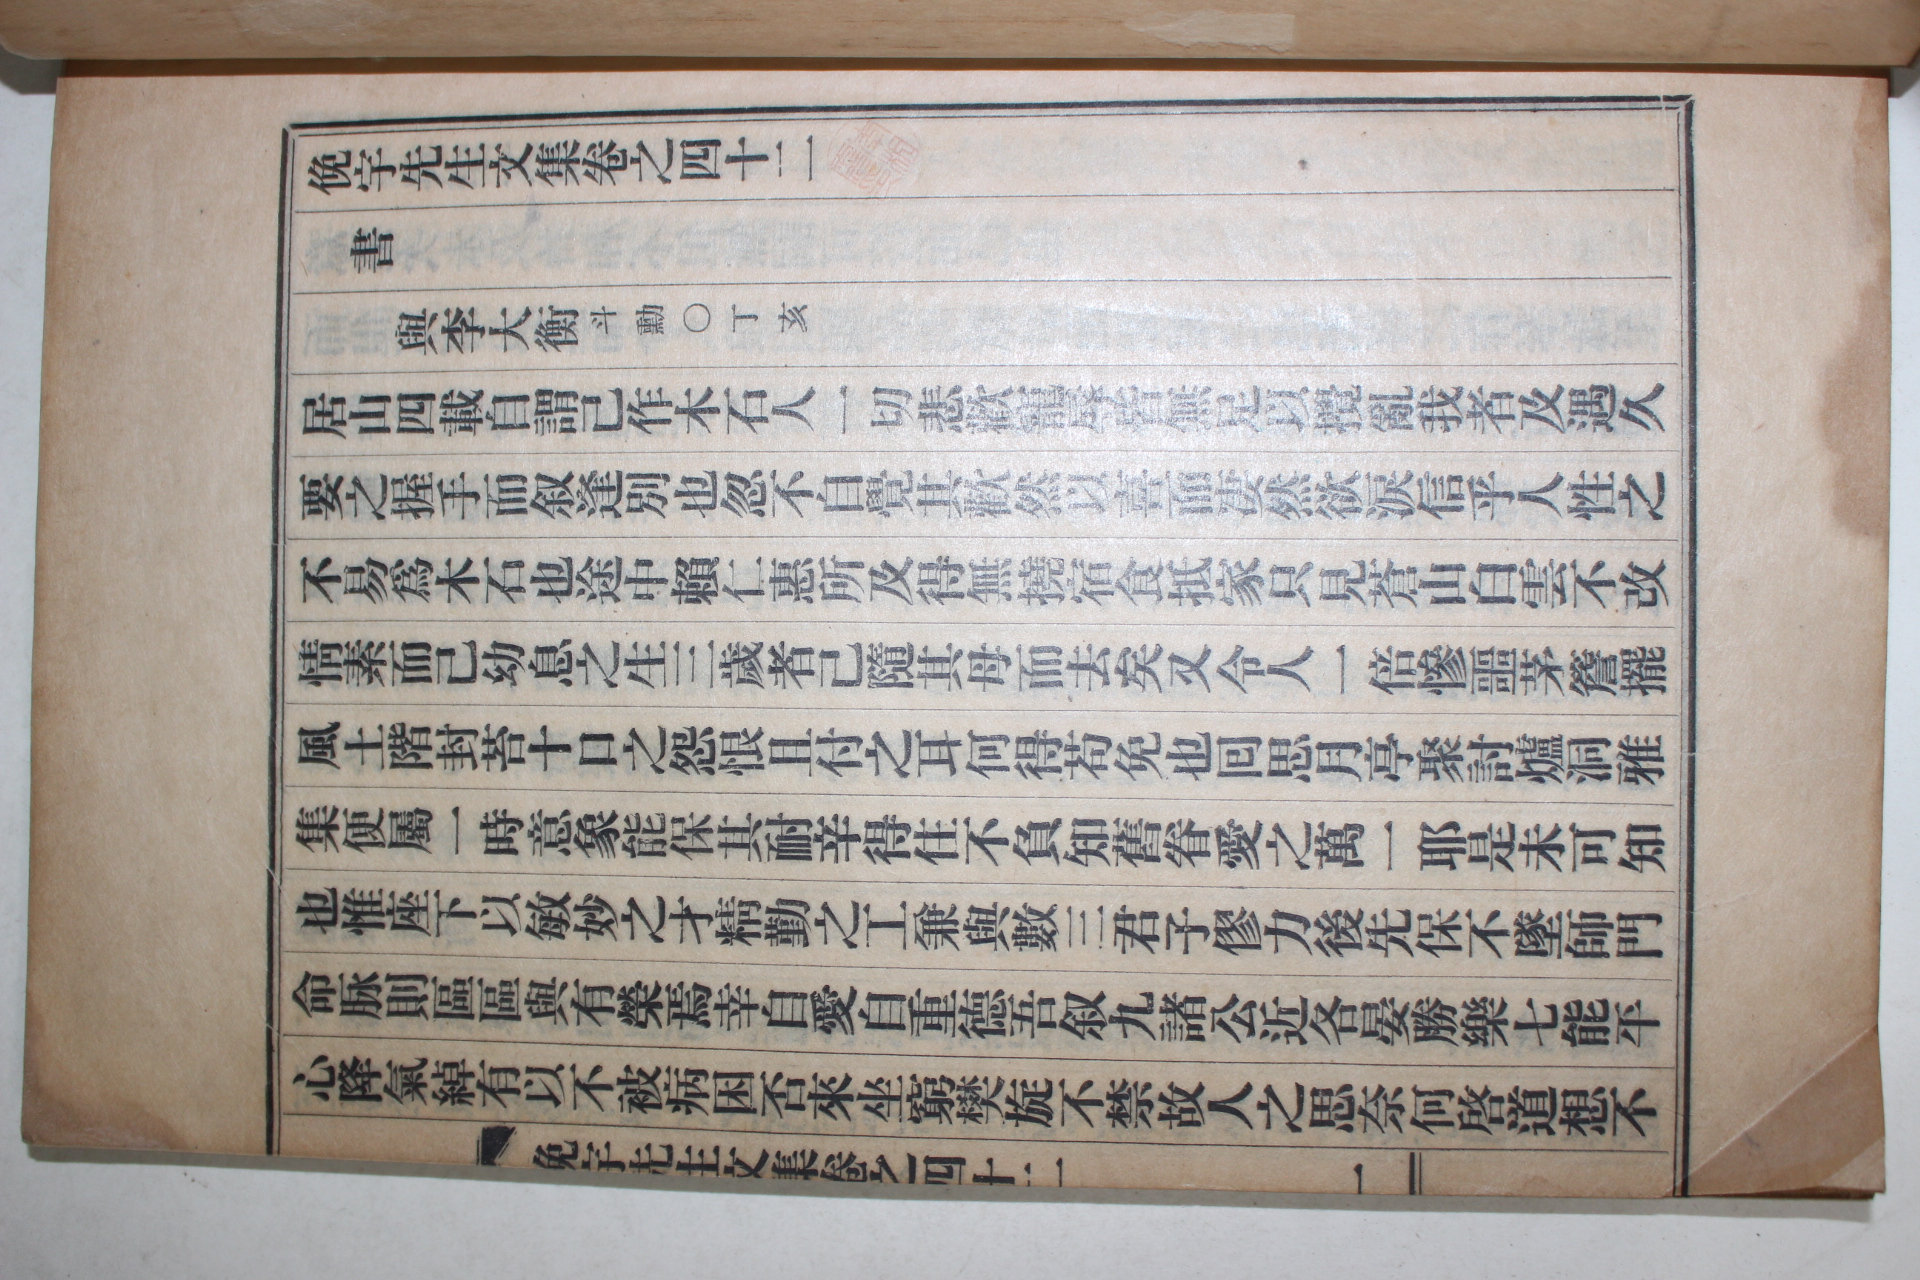 俛宇先生文集卷之四十二
書
與李大衡斗勳○丁亥
居山四載自謂已作木石人一切悲歡寵辱若無足以攪亂我者及遇久
要之握手而叙逢別也忽不自覺其歡然以喜而凄然欲淚信乎人性之
不易爲木石也途中賴仁惠所及得無撓宿食抵家只見蒼山白雲不改
情素而已幼息之生三歲者已隨其母而去矣又令人一倍慘噩茅簷擺
風土階封苔十口之怨恨且付之耳何得苟免也回思月亭聚討爐洞雅
集便屬一時意象能保其耐辛得住不負知舊眷愛之萬一耶是未可知
也惟座下以敏妙之才精勤之工兼與數三君子僇力後先保不墜師門
命脉則區區與有榮焉幸自愛自重德吾叙九諸公近各晏勝樂七能平
心降氣綽有以不被病困否來坐窮樊旋不禁故人之思奈何啓道想不
俛宇先生文集卷之四十二 一